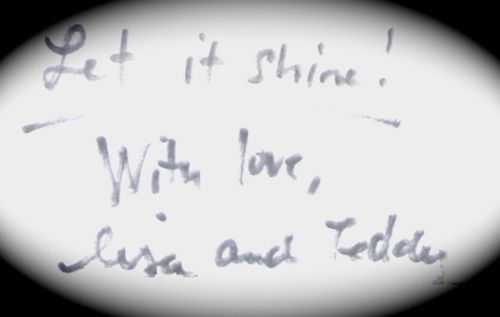 Let it shine!
With love,
Lisa and Teddy